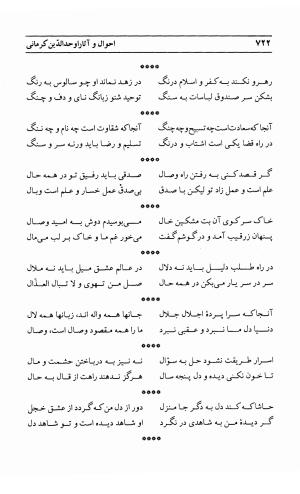 ۷۲۲ احوال و آثار اوحدالدّین کرمانی
****
رهرو نکنند به کفر و اسلام درنگ در زهد نماند او چو سالوس به رنگ
بشکن سر صندوق لباسات به سنگ توحید شنو زبانگ نای و دف و چنگ
****
آنجا که سعادت است چه تسبیح و چه چنگ آنجا که شقاوت است چه نام و چه ننگ
در راه قضا یکی است اشتاب و درنگ تسلیم و رضا باید ورنه سر و سنگ
****
گر قصد کنی به رفتن راه وصال صدقی باید رفیق تو در همه حال
علم است و عمل زاد تو لیکن با صدق بی‌صدق عمل خسار و علم است وبال
****
خاک سر کوی آن بت مشکین خال می‌بوسیدم دوش به امید وصال
پنهان زرقیب آمد و در گوشم گفت می‌خور غم ما و خاک بر لب می‌مال
****
در راه طلب دلیل باید نه دلال در عالم عشق میل باید نه ملال
سر در سر یار می‌بکن در همه حال صل من تهوی و لا تبال العذّال
****
آنجا که سرا پردهٔ اجلال جلال جانها همه واله اند، زبانها همه لال
دنیا دل ما نبرد و عقبی نبرد ما را همه مقصود وصال است، وصال
****
اسرار طریقت نشود حل به سؤال نه نیز به درباختن حشمت و مال
تا خون نکنی دیده و دل پنجه سال هرگز ندهند راهت از قال به حال
****
حاشا که کند دل به دگر جا منزل دور از دل من که گردد از عشق خجل
گر دیدهٔ من به شاهدی در نگرد او شاهد دیده است و تو شاهد دل
****